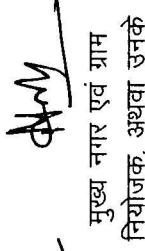 मुख्य नगर एवं ग्राम
नियोजक, अथवा उनके